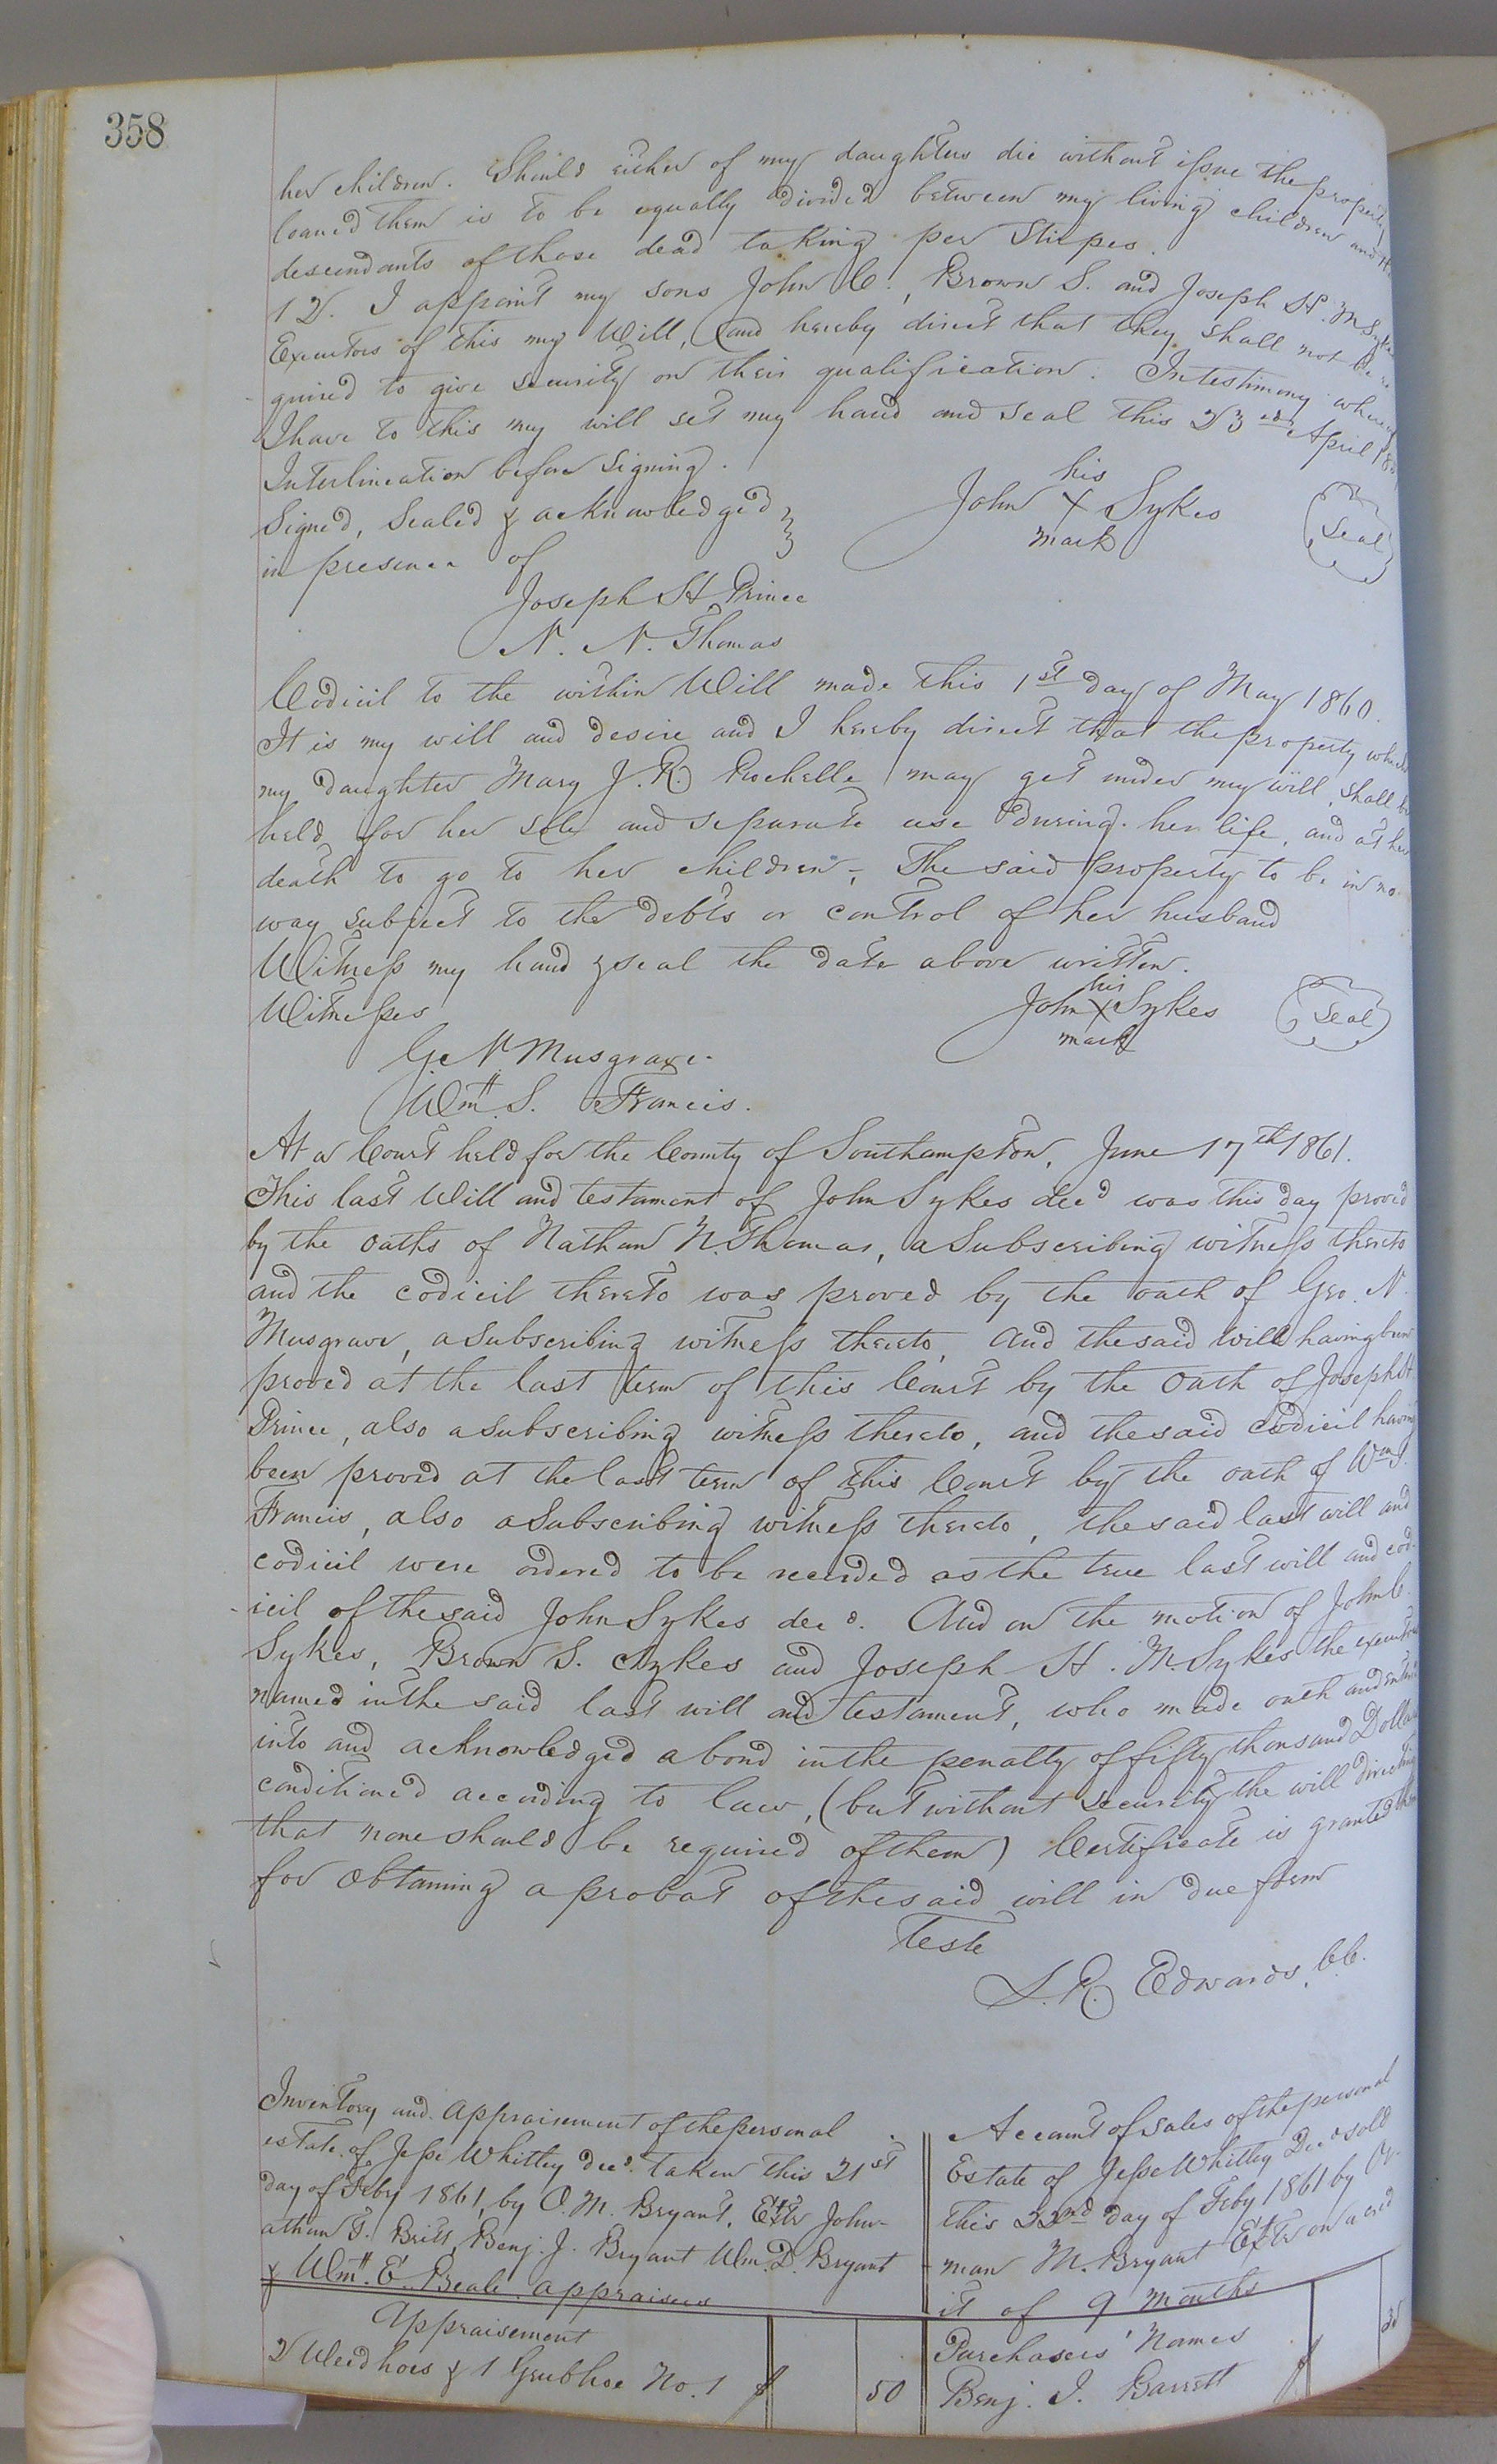 358
her children. Should either of my daughters die without issue the property
loaned them is to be equally divided between my living children and
descendants of those dead taking per Stirpes.
12. I appoint my sons John C., Brown S. and Joseph H. M Sykes
Executors of this my Will, and hereby direct that they shall not be re
quired to give security on their qualification. In testimony whereof
I have to this my will set my hand and seal this 23rd April
Interlineation before Signing.
Signed, Sealed & acknowledged
in presence of
John his X mark Sykes Seal
Joseph H Prince
N. N. Thomas
Codicil to the within Will made this 1st day of May 1860.
It is my will and desire and I hereby direct that the property which
my daughter Mary J. R. Rochelle may get under my will, shall be
held for her sole and separate use during her life, and at her
death to go to her children, The said property to be in no
way subject to the debts or control of her husband
Witness my hand & seal the date above written.
Witnesses
John his X mark Sykes Seal
G. N Musgrave.
Wm. S. Francis.
At a Court held for the County of Southampton, June 17th 1861.
This last Will and testament of John Sykes decd was this day proved
by the oaths of Nathan N. Thomas, a Subscribing witness thereto
and the codicil thereto was proved by the oath of Geo. N.
Musgrave, a subscribing witness thereto, and the said will having been
proved at the last term of this Court by the oath of Joseph H.
Prince, also a subscribing witness thereto, and the said codicil having
been proved at the last term of this Court by the oath of Wm S.
Francis, also a Subscribing witness thereto, the said last will and
codicil were ordered to be recorded as the true last will and cod-
icil of the said John Sykes decd. And on the motion of John C.
Sykes, Brown S. Sykes and Joseph H. M. Sykes the executors
named in the said last will and testament, who made oath and entered
into and acknowledged a bond in the penalty of fifty thousand Dollars
conditioned according to law, (but without security the will directing
that none should be required of them) Certificate is granted them
for obtaining a probat of the said will in due form
Teste
L. R. Edwards, CC.
Inventory and appraisement of the personal
estate of Jesse Whitley decd. taken this 21st
day of Feby 1861, by O. M. Bryant, Extr John-
athan T. Britt, Benj. J. Bryant Wm. D. Bryant
& Wm. E. Beale appraisers
Appraisement
2 Weed hoes & 1 Grub hoe No. 1 $ 50
Account of sales of the personal
Estate of Jesse Whitley Decd sold
this 22nd day of Feby 1861 by Or-
man M. Bryant Extr on a cred
it of 9 Months
Purchasers' Names
Benj. J. Barrett $